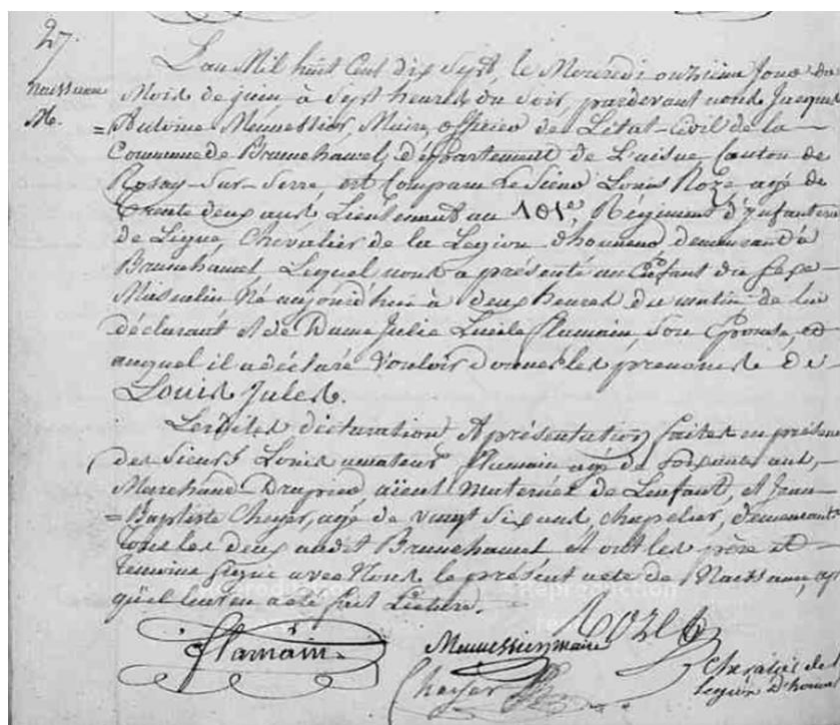 27.
Naissance
M.
L'an Mil huit Cent dix Sept, le Mercredi onzieme Jour du
Mois de juin à Sept heures du Soir, pardevant nous Jacques
Antoine Meunessier, Maire, officier de L'état-civil de la
Commune de Brunehamel, département de L'aisne, Canton de
Rozoy-Sur-Serre est Comparu Le Sieur Louis Roze agé de
trente deux ans, Lieutenant au 101e. Régiment d'infanterie
de Ligne, Chevalier de la Legion d'honneur, demeurant à
Brunehamel, Lequel nous a présenté un Enfant du Sexe
Masculin Né aujourd'hui à deux heures du matin de lui
déclarant et de Dame Julie Lucile Flamain, Son Epouse, et
auquel il a déclaré Vouloir donner les prenoms de
Louis Jules.
Lesdites déclaration et présentation faites en présence
des Sieurs Louis amateur Flamain agé de soixante ans,
Marchand-Drapier, aïeul maternel de L'enfant, et Jean-
=Baptiste Choyer, agé de vingt Six ans, chapelier, demeurant
tous les deux audit Brunehamel et ont les père et
temoins Signé avec Nous le présent acte de Naissance, ap
qu'il leur en a été fait Lecture.
Flamain
Meunessier maire
Roze
Choyer
Chevalier de la
légion d'honneur